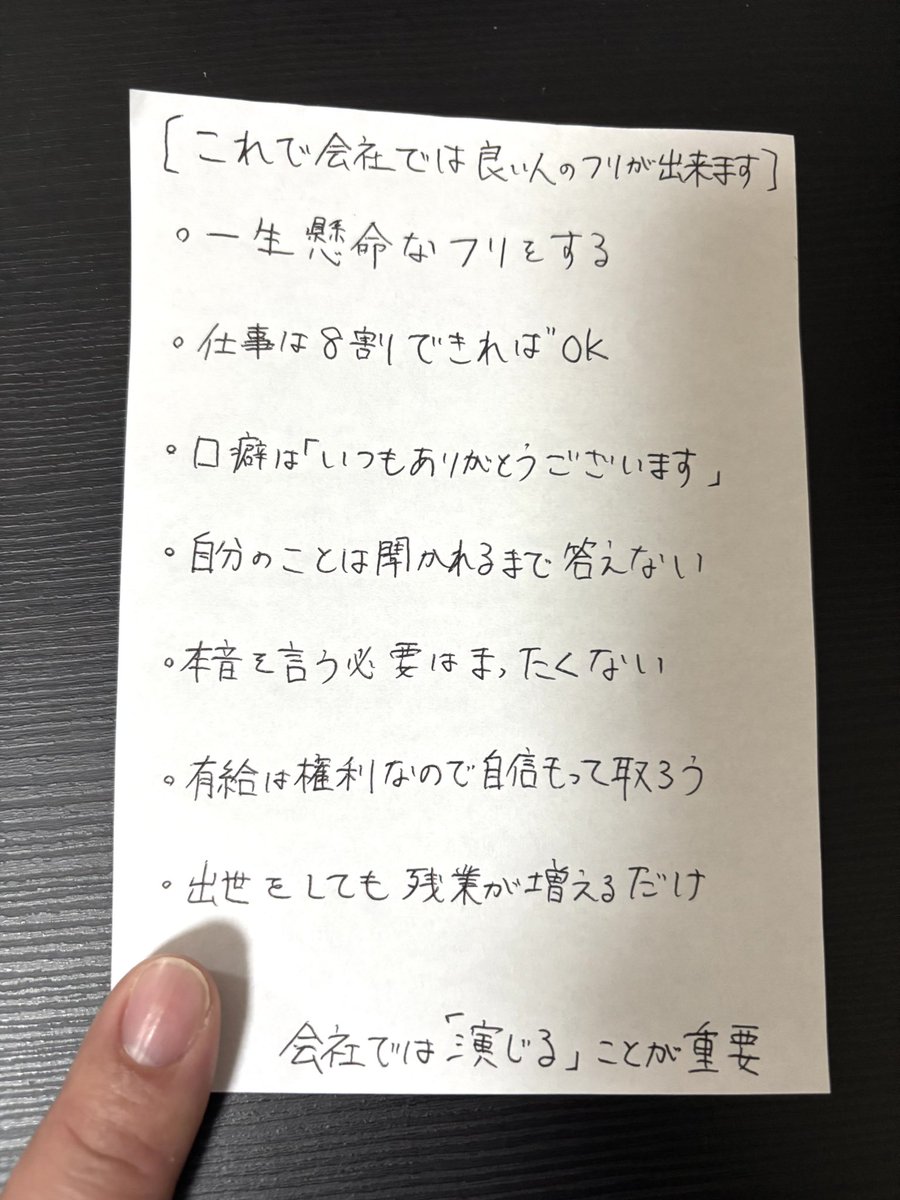 [これで会社では良い人のフリが出来ます]
○一生懸命なフリをする
○仕事は8割できればOK
○口癖は「いつもありがとうございます」
○自分のことは聞かれるまで答えない
○本音を言う必要はまったくない
○有給は権利なので自信もって取ろう
○出世をしても残業が増えるだけ
会社では「演じる」ことが重要